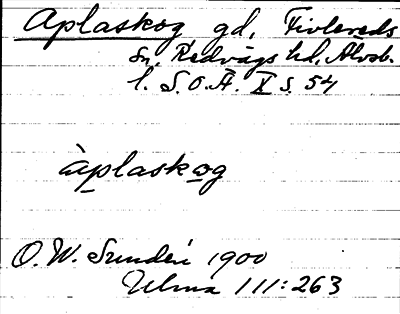 Aplaskog gd, Tivlereds
sn, Redvägs hd, Älvsb.
l. S.O.Ä. X s. 54
àplaskog
O. W. Sundén 1900
Ulma 111:263